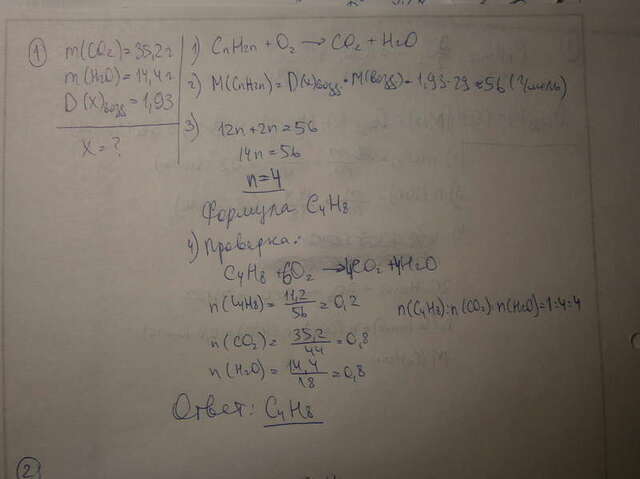 1
m(CO₂)=35,2 г
m(H₂O)=14,4 г
D(X)возд=1,93
X=?
1) CnH2n + O₂ → CO₂ + H₂O
2) M(CnH2n)=D(X)возд·M(возд)=1,93·29≈56(г/моль)
3) 12n+2n=56
14n=56
n=4
Формула C₄H₈
4) Проверка:
C₄H₈ + 6O₂ → 4CO₂ + 4H₂O
n(C₄H₈)=11,2/56=0,2
n(C₄H₈):n(CO₂):n(H₂O)=1:4:4
n(CO₂)=35,2/44=0,8
n(H₂O)=14,4/18=0,8
Ответ: C₄H₈
2